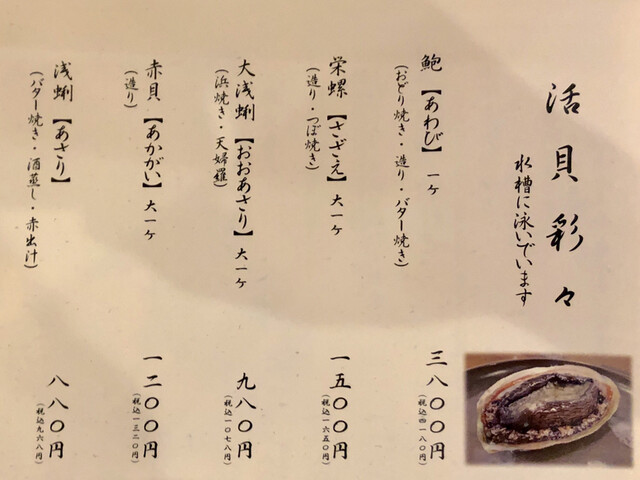 活貝彩々
水槽に泳いでいます
鮑【あわび】 一ヶ
(おどり焼き・造り・バター焼き)
三八〇〇円
(税込四一八〇円)
栄螺【さざえ】 大一ヶ
(造り・つぼ焼き)
一五〇〇円
(税込一六五〇円)
大浅蜊【おおあさり】 大一ヶ
(浜焼き・天婦羅)
九八〇円
(税込一〇七八円)
赤貝【あかがい】 大一ヶ
(造り)
一二〇〇円
(税込一三二〇円)
浅蜊【あさり】
(バター焼き・酒蒸し・赤出汁)
八八〇円
(税込九六八円)